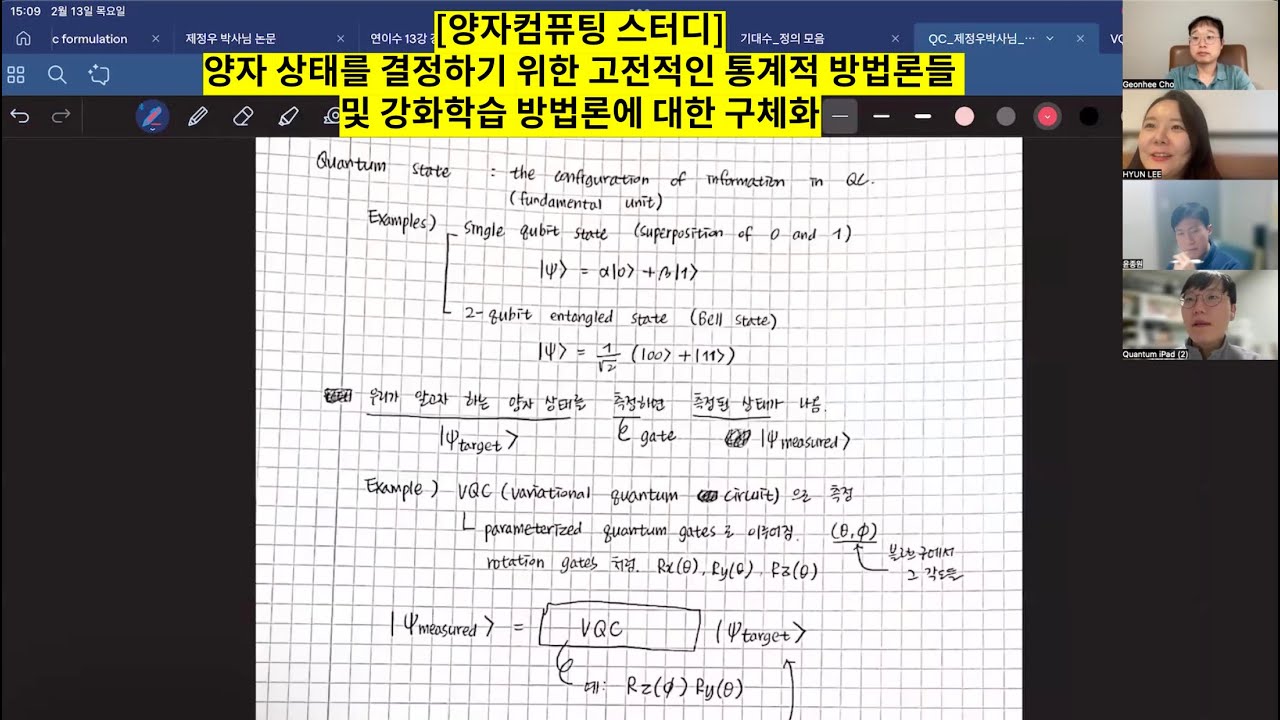 15:09 2월 13일 목요일
[양자컴퓨팅 스터디]
양자 상태를 결정하기 위한 고전적인 통계적 방법론들
및 강화학습 방법론에 대한 구체화
c formulation
제정우 박사님 논문
연이수 13강
기대수_정의 모음
QC_제정우박사님_...
Geonhee Cho
HYUN LEE
윤종원
Quantum iPad (2)
Quantum state : the configuration of information in QC.
(fundamental unit)
Examples) single qubit state (superposition of 0 and 1)
|ψ> = α|0> + β|1>
2-qubit entangled state (Bell state)
|ψ> = 1/√2 (|00> + |11>)
우리가 알고자 하는 양자 상태를 측정하면 측정된 상태가 나옴.
|ψtarget> gate |ψmeasured>
Example) VQC (variational quantum circuit) 으로 측정
parameterized quantum gates로 이루어짐. (θ, ϕ)
rotation gates 처럼. Rx(θ), Ry(θ), Rz(θ)
블로흐 구에서
그 각도들
|ψmeasured> = VQC |ψtarget>
예: Rz(ϕ) Ry(θ)